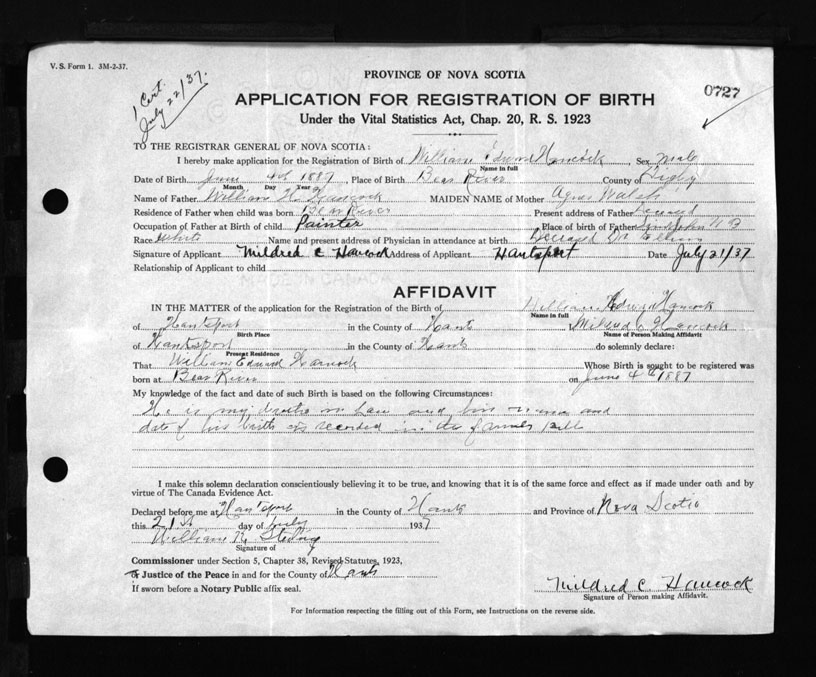 V. S. Form 1. 3M-2-37.
1 Cert.
July 22/37.
PROVINCE OF NOVA SCOTIA
0727
APPLICATION FOR REGISTRATION OF BIRTH
Under the Vital Statistics Act, Chap. 20, R. S. 1923
TO THE REGISTRAR GENERAL OF NOVA SCOTIA:
I hereby make application for the Registration of Birth of William Edward Hancock Sex Male
Name in full
Date of Birth June 4th 1887 Place of Birth Bear River County of Digby
Month Day Year
Name of Father William H. Hancock MAIDEN NAME of Mother Agnes Walsh
Residence of Father when child was born Bear River Present address of Father Deceased
Occupation of Father at Birth of child Painter Place of Birth of Father Saint John N B
Race White Name and present address of Physician in attendance at birth Deceased Dr
Signature of Applicant Mildred C Hancock Address of Applicant Hantsport Date July 21/37
Relationship of Applicant to child
AFFIDAVIT
IN THE MATTER of the application for the Registration of Birth of William Edward Hancock
Name in full
of Hantsport in the County of Hants Mildred C Hancock
Birth Place Name of Person Making Affidavit
of Hantsport in the County of Hants do solemnly declare:
Present Residence
That William Edward Hancock Whose Birth is sought to be registered was
born at Bear River on June 4th 1887
My knowledge of the fact and date of such Birth is based on the following Circumstances:
He is my brother in law and his name and
date of his birth is recorded in the family bible
I make this solemn declaration conscientiously believing it to be true, and knowing that it is of the same force and effect as if made under oath and by
virtue of The Canada Evidence Act.
Declared before me at Hantsport in the County of Hants and Province of Nova Scotia
this 21st day of July 1937
William R.
Signature of
Commissioner under Section 5, Chapter 38, Revised Statutes, 1923,
or Justice of the Peace in and for the County of Hants
If sworn before a Notary Public affix seal.
Mildred C Hancock
Signature of Person making Affidavit.
For Information respecting the filling out of this Form, see Instructions on the reverse side.